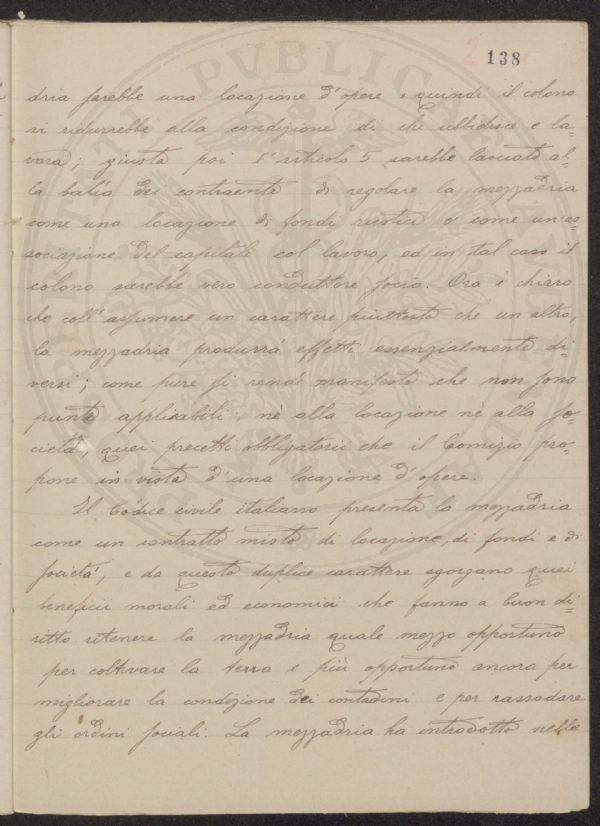 138
dria sarebbe una locazione d'opere e quindi il colono
si ridurrebbe alla condizione di chi ubbidisce e la
vora; giusta poi l'articolo 5 sarebbe lasciato al=
la balìa dei contraenti di regolare la mezzadria
come una locazione di fondi rustici o come un'as=
sociazione del capitale col lavoro, ed in tal caso il
colono sarebbe vero conduttore socio. Ora è chiaro
che coll'assumere un carattere piuttosto che un altro,
la mezzadria produrrà effetti essenzialmente di=
versi; come pure si rende manifesto che non sono
punto applicabili, nè alla locazione nè alla so=
cietà, quei precetti obbligatorii che il Comizio pro=
pone in vista d'una locazione d'opere.
Il Codice civile italiano presenta la mezzadria
come un contratto misto di locazione, di fondi e di
società, e da questo duplice carattere sgorgano quei
beneficii morali ed economici che fanno a buon di=
ritto ritenere la mezzadria quale mezzo opportuno
per coltivare la terra e più opportuno ancora per
migliorare la condizione dei contadini e per rassodare
gli ordini sociali. La mezzadria ha introdotto nelle